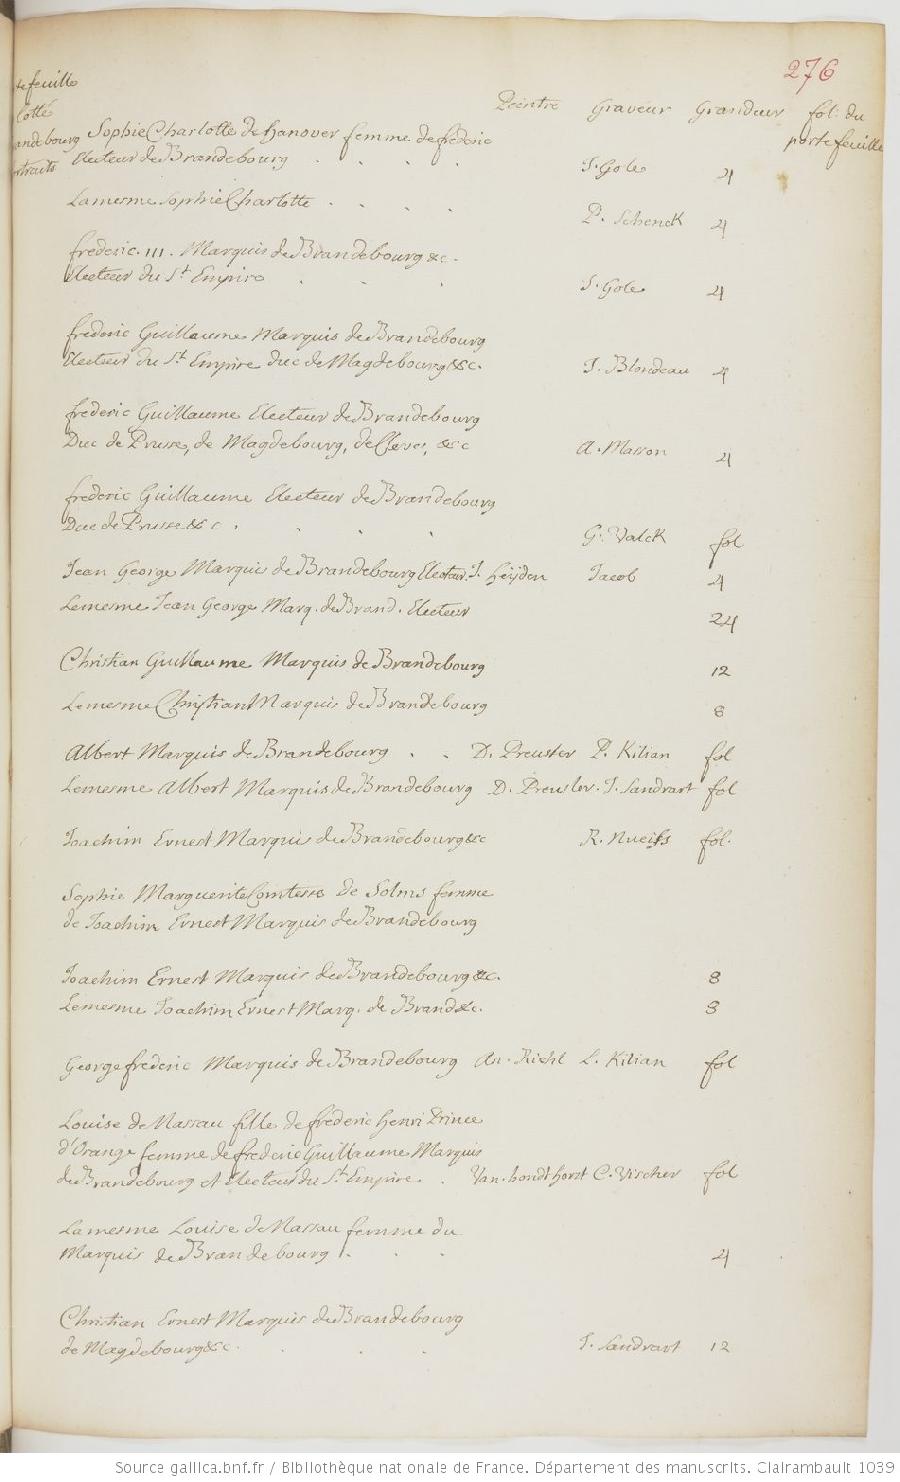 276
tefeuille
lotte
andebourg
rtraits
Peintre Graveur Grandeur fol. du
portefeuille
Sophie Charlotte de Hanover femme de frederic
Electeur de Brandebourg . . . . J. Gole 4
La mesme Sophie Charlotte . . . . P. Schenck 4
frederic. III. Marquis de Brandebourg &c.
Electeur du St Empire . . . J. Gole 4
frederic Guillaume Marquis de Brandebourg
Electeur du St Empire duc de Magdebourg &c. J. Blondeau 4
frederic Guillaume Electeur de Brandebourg
Duc de Prusse, de Magdebourg, de Cleves, &c A. Masson 4
frederic Guillaume Electeur de Brandebourg
Duc de Prusse &c . . . . G. Valck fol
Jean George Marquis de Brandebourg Electeur. J. Heyden Jacob 4
Le mesme Jean George Marq. de Brand. Electeur 24
Christian Guillaume Marquis de Brandebourg 12
Le mesme Christian Marquis de Brandebourg 8
Albert Marquis de Brandebourg . . D. Preusler P. Kilian fol
Le mesme Albert Marquis de Brandebourg D. Preusler. J. Sandrart fol
Joachim Ernest Marquis de Brandebourg &c R. fol.
Sophie Marguerite Comtesse de Solms femme
de Joachim Ernest Marquis de Brandebourg
Joachim Ernest Marquis de Brandebourg &c. 8
Le mesme Joachim Ernest Marq. de Brand &c. 8
George frederic Marquis de Brandebourg An. Richl L. Kilian fol
Louise de Nassau fille de frederic henri Prince
d'Orange femme de frederic Guillaume Marquis
de Brandebourg et Electeur du St Empire. . Van. hondthorst C. Vischer fol
La mesme Louise de Nassau femme du
Marquis de Brandebourg . . . 4
Christian Ernest Marquis de Brandebourg
de Magdebourg &c. . . . J. Sandrart 12
Source gallica.bnf.fr / Bibliothèque nationale de France. Département des manuscrits. Clairambault 1039